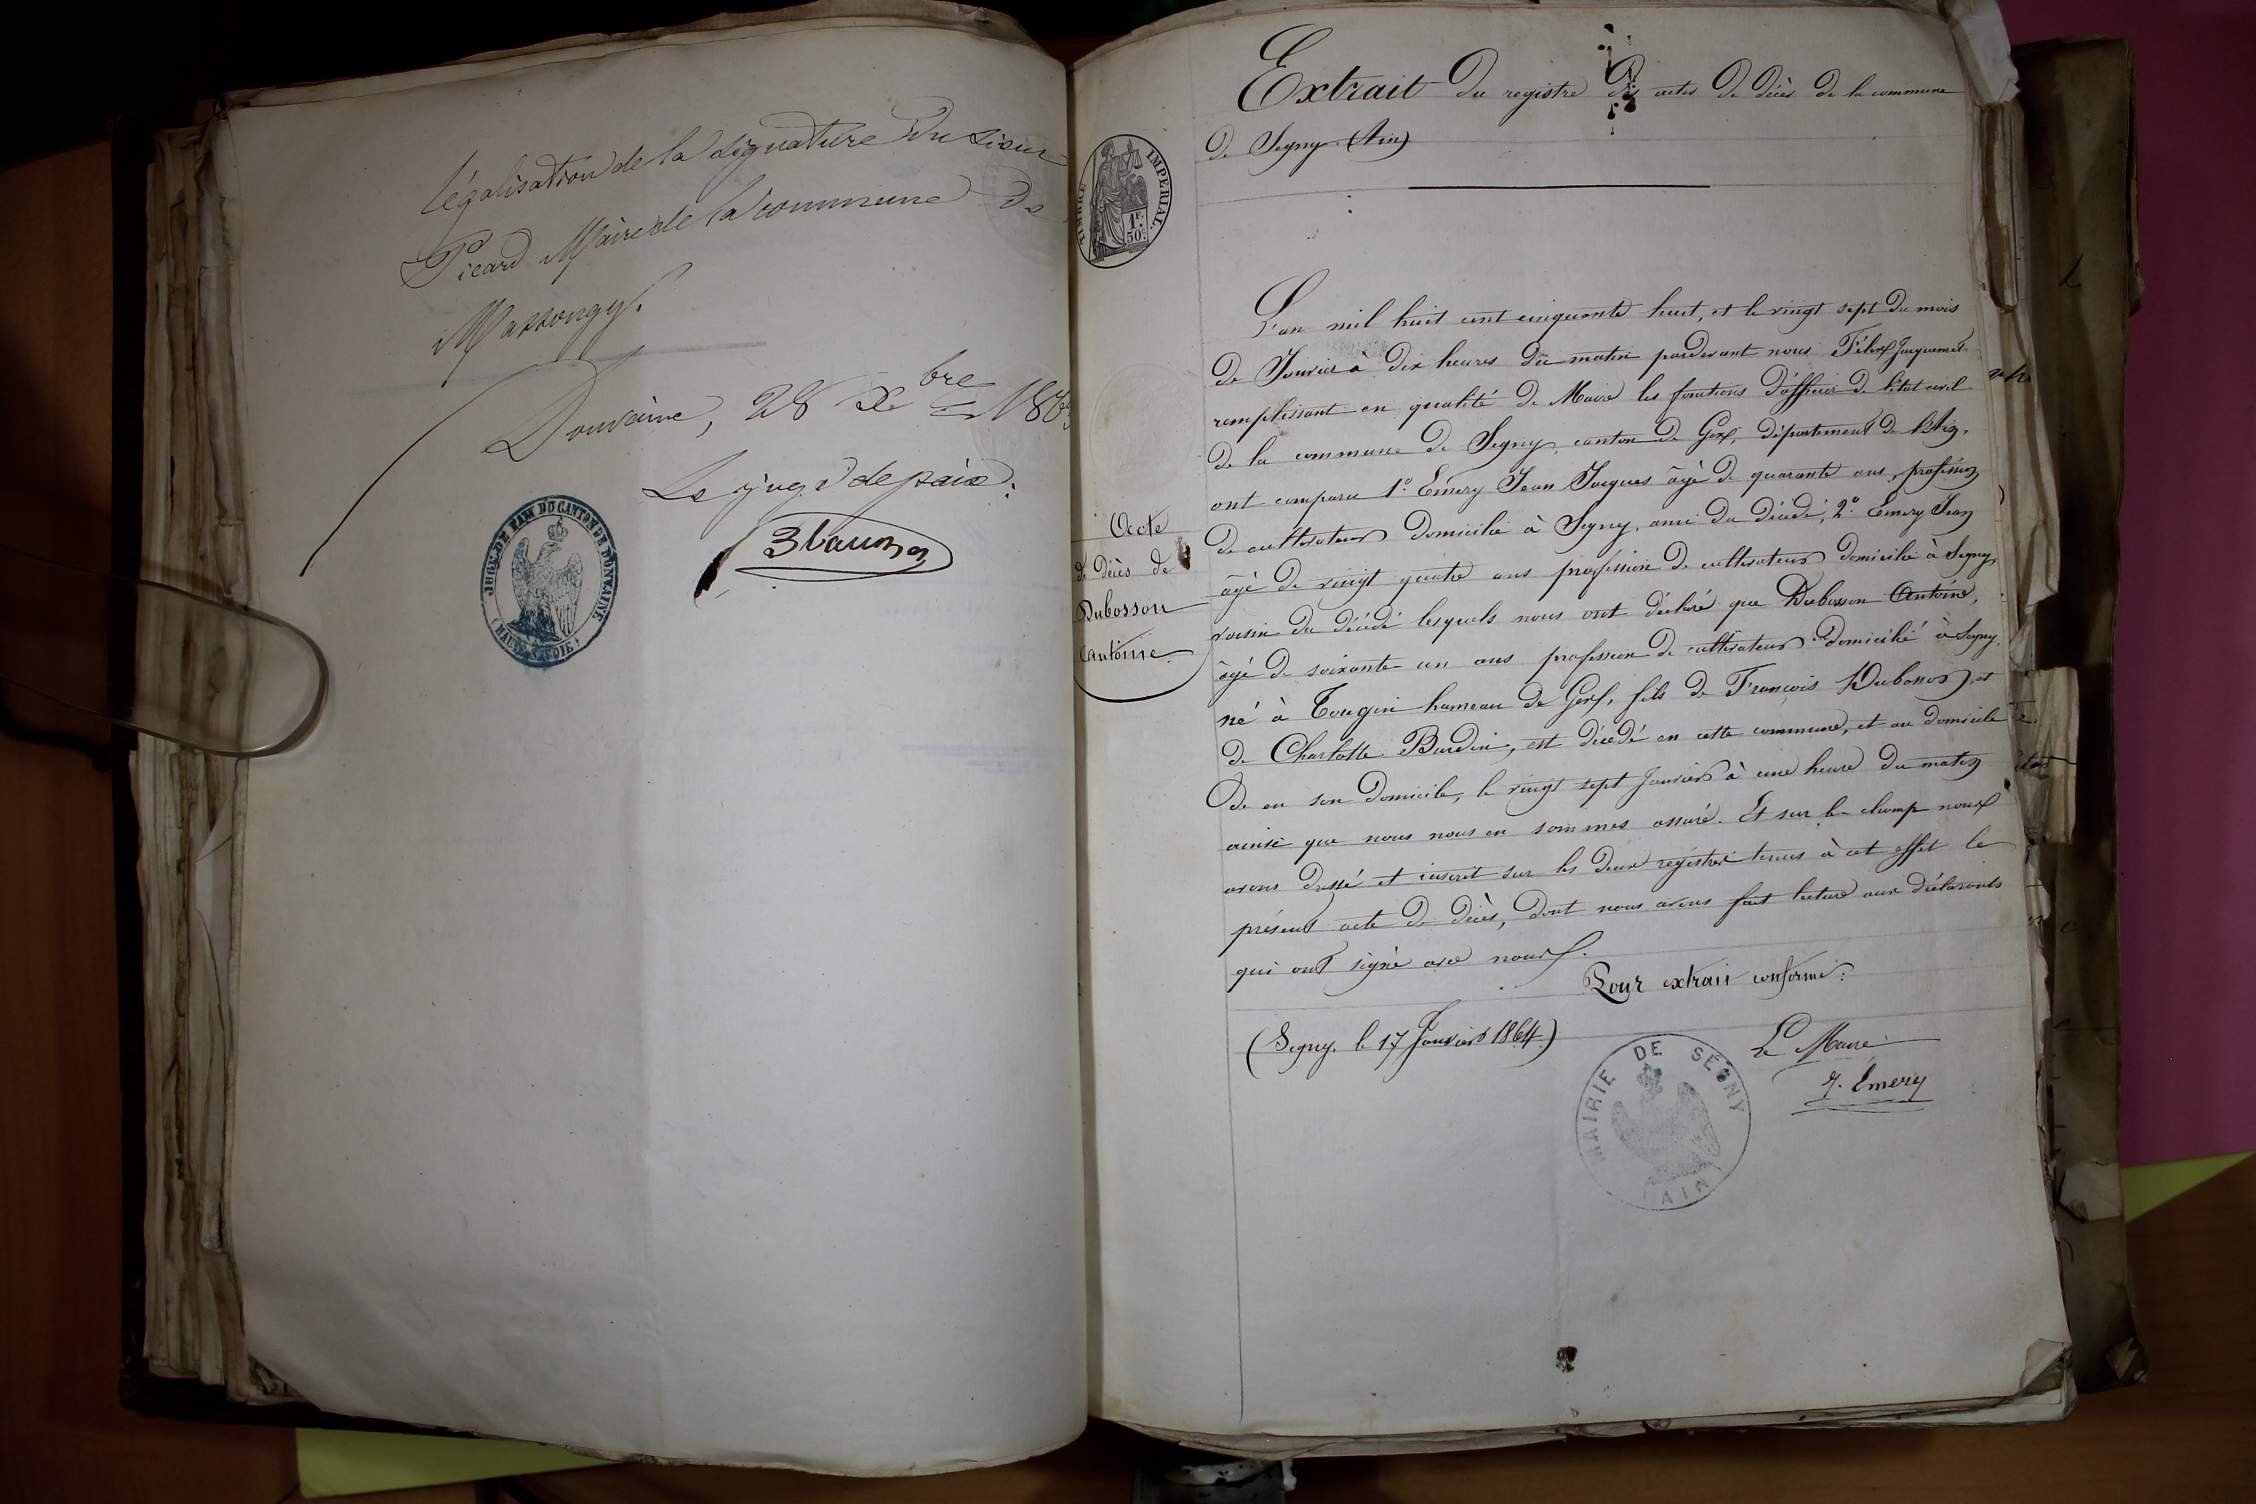 Légalisation de la signature du sieur
Picard Maire de la commune de
Massongy.
Douvaine, 28 Xbre 186
Le juge de paix:
JUGE DE PAIX DU CANTON DE DOUVAINE
(HAUTE SAVOIE)
Extrait du registre des actes de décès de la commune
de Segny (Ain)
TIMBRE IMPERIAL.
1F.
50c.
Acte
de décès de
Dubosson
Antoine.
L'an mil huit cent cinquante huit, et le vingt sept du mois
de Janvier à dix heures du matin pardevant nous Félix Jacquemet
remplissant en qualité de Maire les fonctions d'officier de l'état civil
de la commune de Segny, canton de Gex, département de l'Ain,
ont comparu 1º Emery Jean Jacques âgé de quarante ans, profession
de cultivateur domicilié à Segny, ami du décédé, 2º Emery Jean
âgé de vingt quatre ans profession de cultivateur domicilié à Segny,
voisin du décédé lesquels nous ont déclaré que Dubosson Antoine,
âgé de soixante un ans profession de cultivateur domicilié à Segny,
né à Tougin hameau de Gex, fils de François Dubosson, et
de Charlotte Burdin, est décédé en cette commune, et au domicile
de en son domicile, le vingt sept Janvier à une heure du matin
ainsi que nous nous en sommes assuré. Et sur le champ nous
avons dressé et inscrit sur les deux registres tenus à cet effet le
présent acte de décès, dont nous avons fait lecture aux déclarants
qui ont signé avec nous.
Pour extrait conforme:
(Segny, le 17 Janvier 1864)
Le Maire
J. Emery
MAIRIE DE SÉGNY
(AIN)